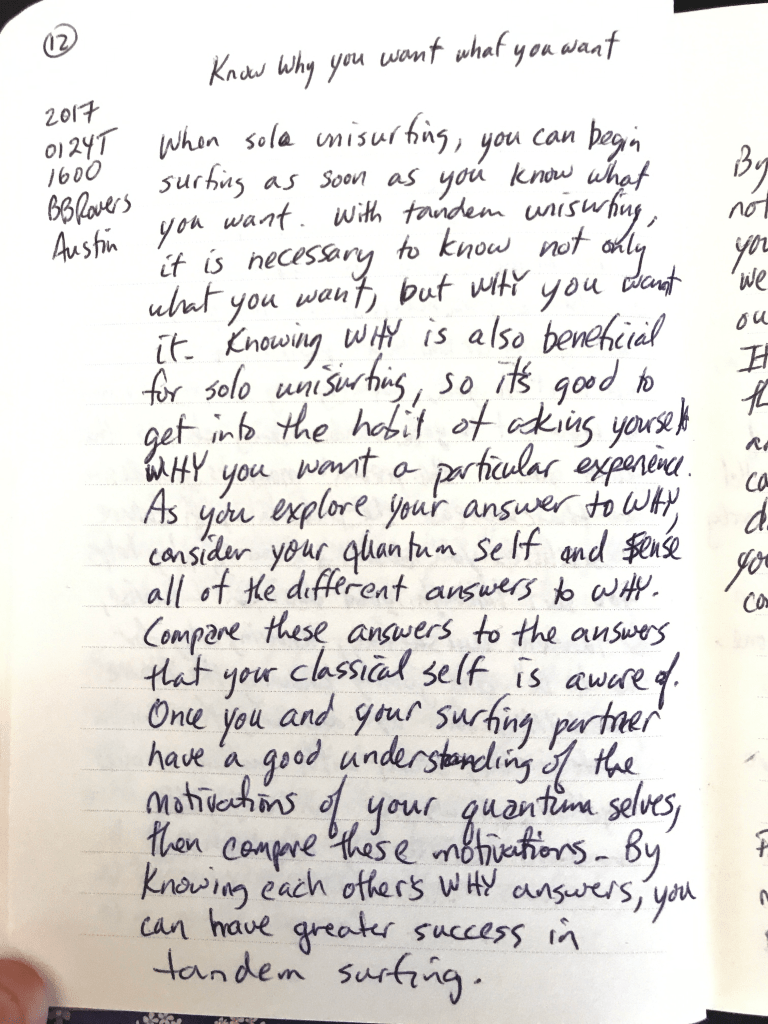 12
Know Why you want what you want
2017
0124T
1600
BBRovers
Austin
When solo unisurfing, you can begin
surfing as soon as you know what
you want. With tandem unisurfing,
it is necessary to know not only
what you want, but WHY you want
it. Knowing WHY is also beneficial
for solo unisurfing, so it's good to
get into the habit of asking yourself
WHY you want a particular experience.
As you explore your answer to WHY,
consider your quantum self and sense
all of the different answers to WHY.
Compare these answers to the answers
that your classical self is aware of.
Once you and your surfing partner
have a good understanding of the
motivations of your quantum selves,
then compare these motivations. By
Knowing each other's WHY answers, you
can have greater success in
tandem surfing.
By
not
you
we
ou
It
th
an
co
di
you
co